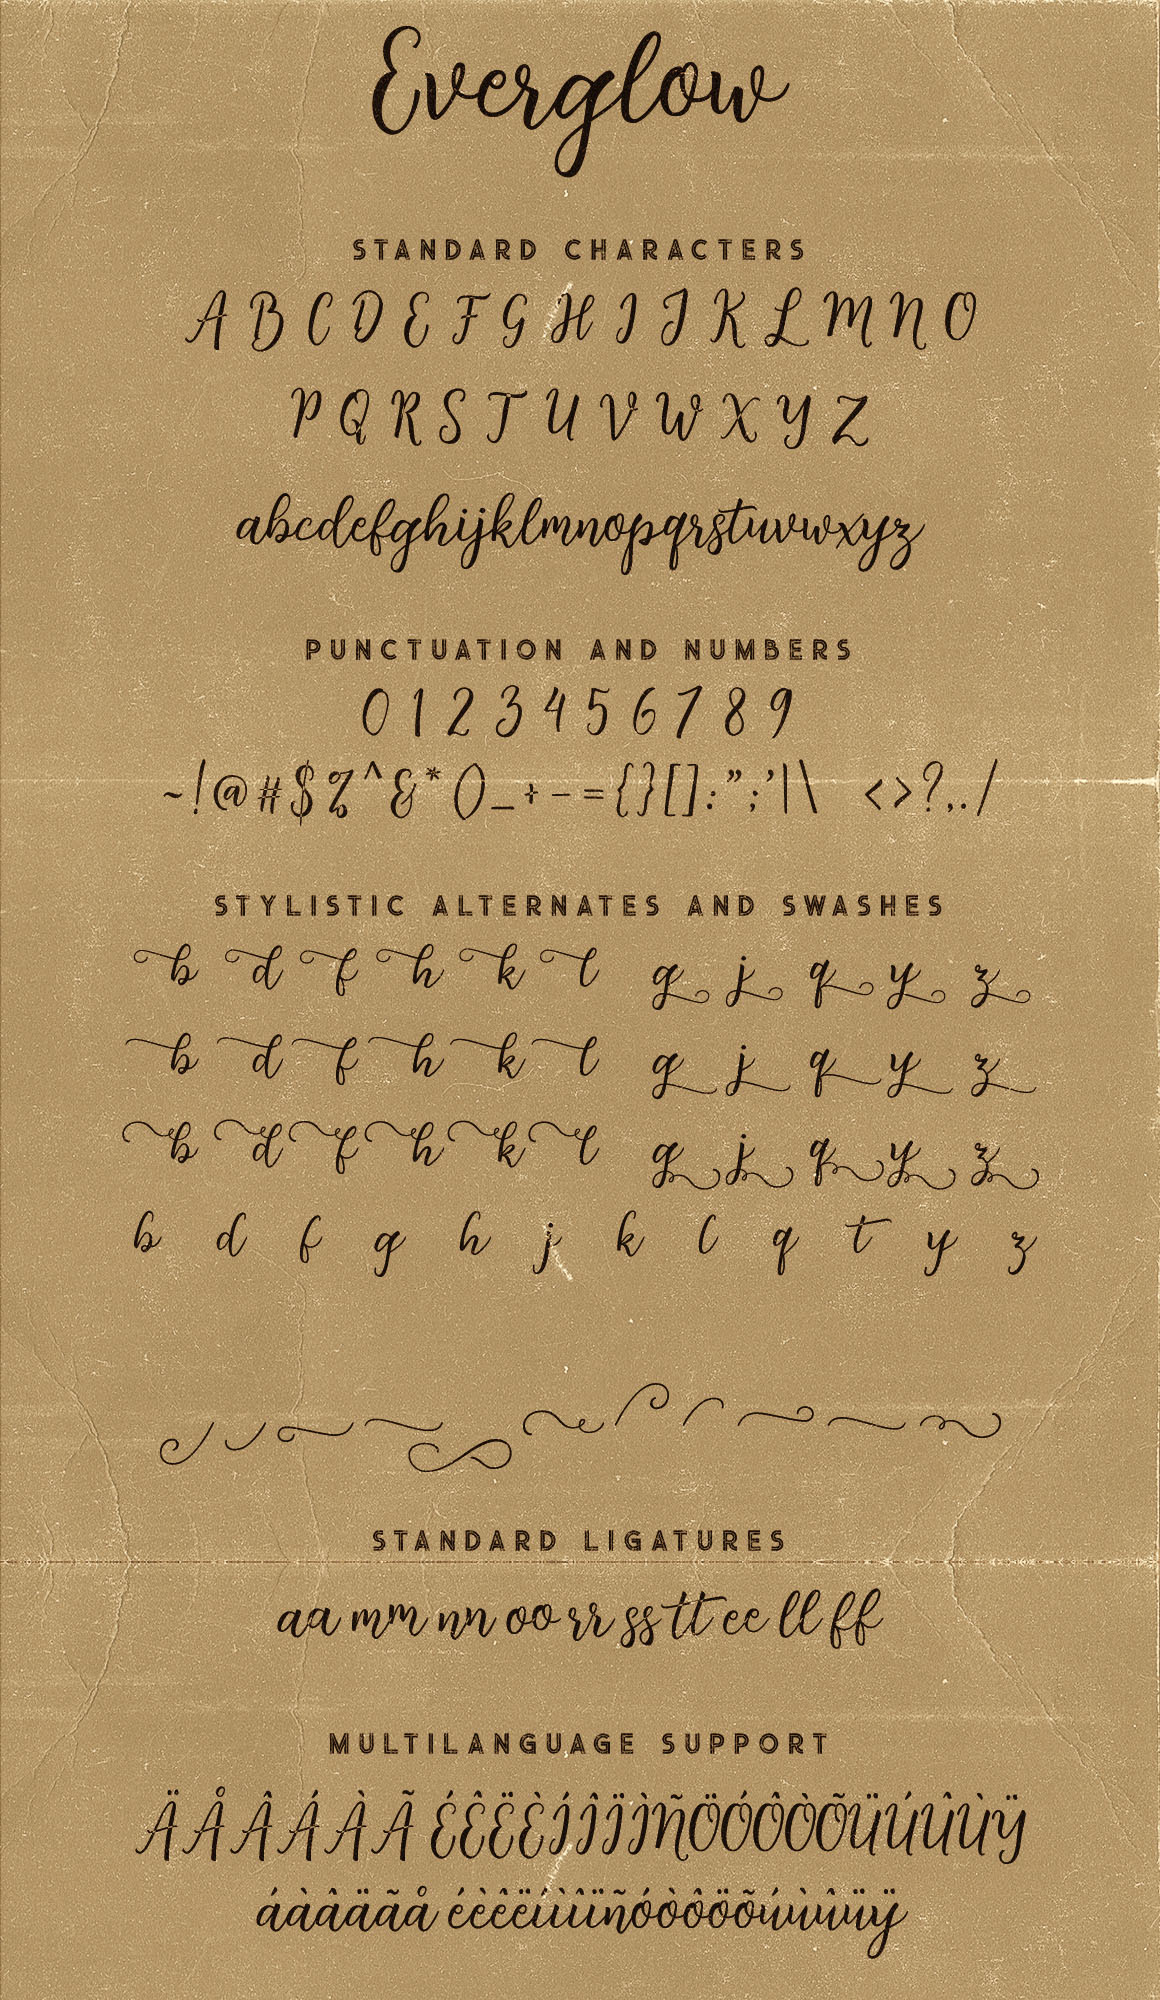 Everglow
STANDARD CHARACTERS
A B C D E F G H I J K L M N O
P Q R S T U V W X Y Z
abcdefghijklmnopqrstuvwxyz
PUNCTUATION AND NUMBERS
0 1 2 3 4 5 6 7 8 9
~!@#$%^&*()_+-={}[]:";'|\ <>?,./
STYLISTIC ALTERNATES AND SWASHES
b d f h k l g j q y z
b d f h k l g j q y z
b d f h k l g j q y z
b d f g h j k l q t y z
STANDARD LIGATURES
aa mm nn oo rr ss tt ee ll ff
MULTILANGUAGE SUPPORT
ÄÅÂÁÀÃ ÉÊËÈÍÎÏÌÑÖÓÔÒÕÜÚÛÙŸ
áàâäãå éèêëíìîïñóòôöõúùûüÿ